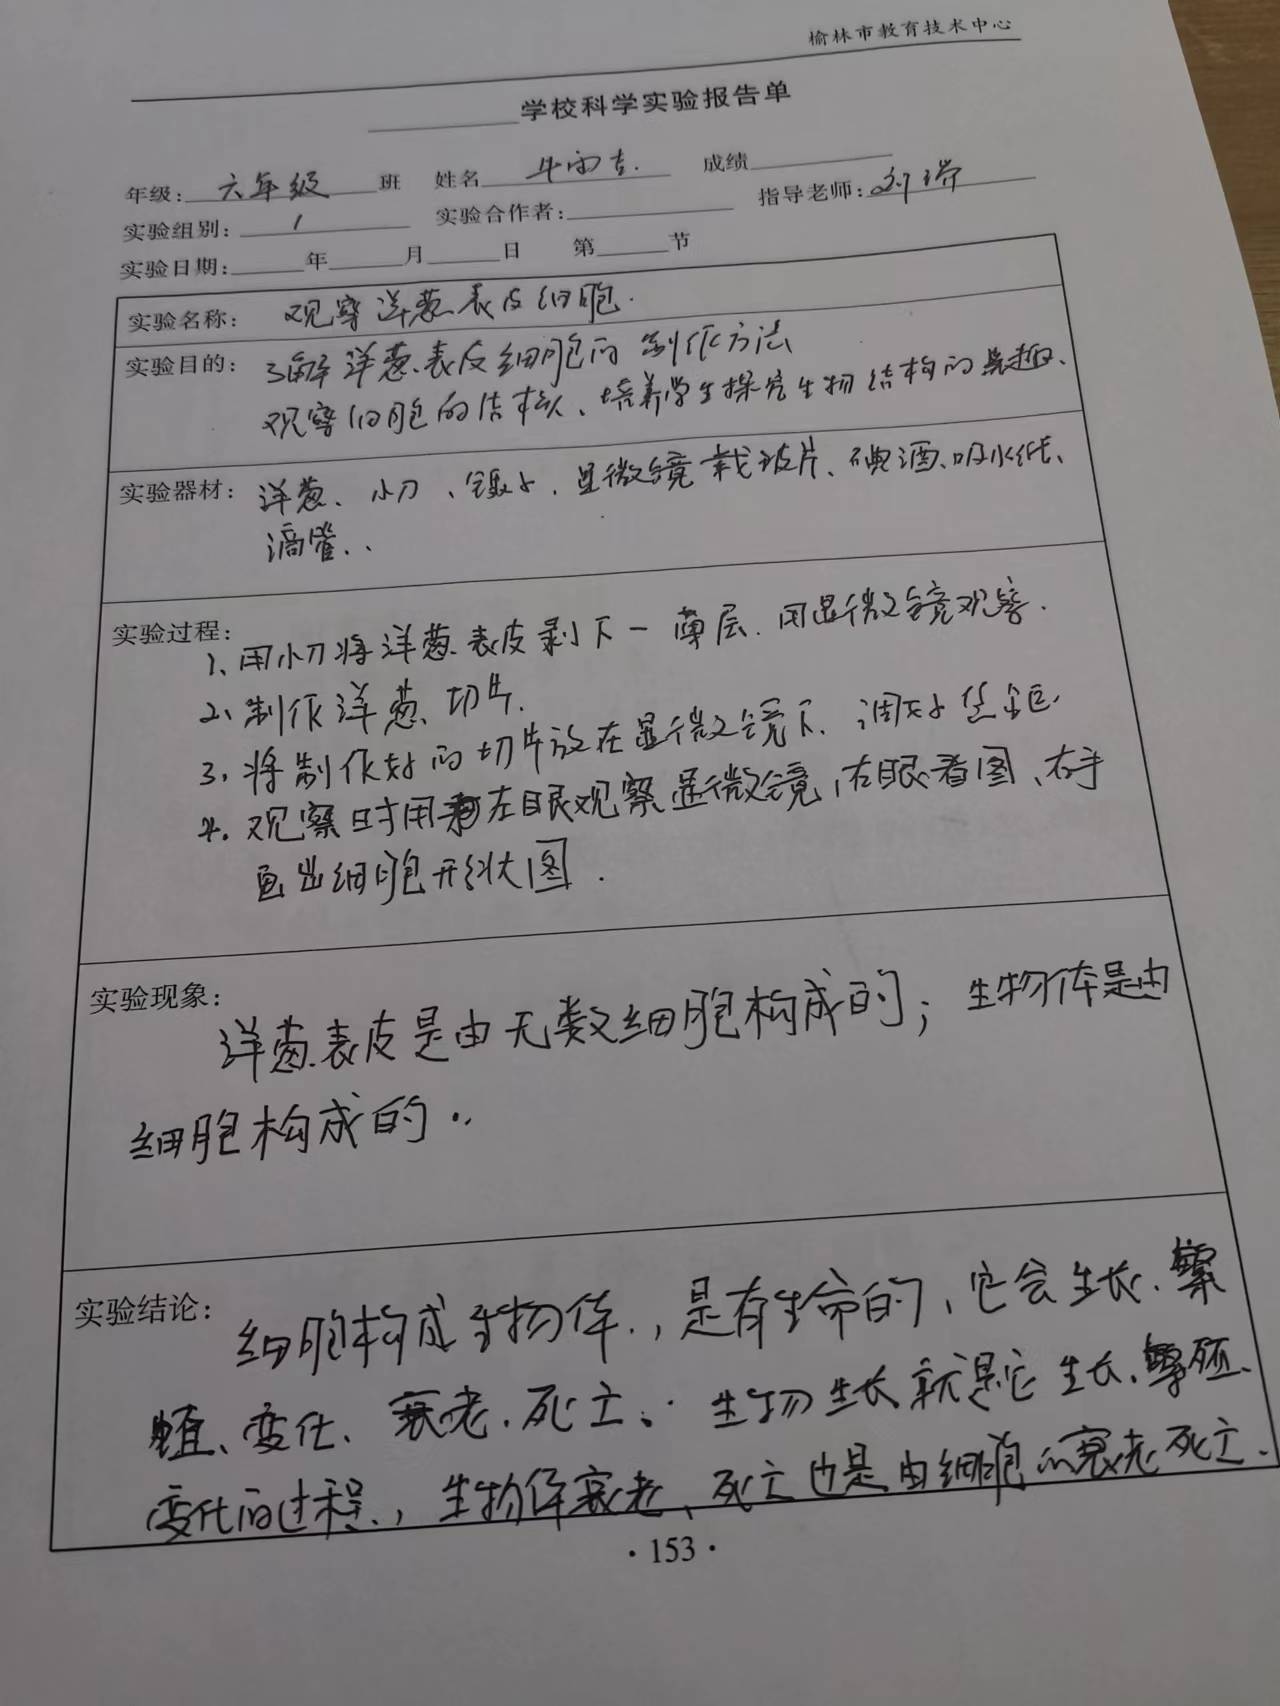 榆林市教育技术中心
学校科学实验报告单
年级: 六年级 班 姓名 牛雨吉. 成绩
实验组别: 1 实验合作者: 指导老师: 刘瑞
实验日期: 年 月 日 第 节
实验名称: 观察洋葱表皮细胞.
实验目的: 了解洋葱表皮细胞的制作方法
观察细胞的结构、培养学生探究生物结构的兴趣、
实验器材: 洋葱、小刀、镊子、显微镜 载玻片、碘酒、吸水纸、
滴管..
实验过程:
1、用小刀将洋葱表皮剥下一薄层.用显微镜观察.
2、制作洋葱切片.
3、将制作好的切片放在显微镜下.调好焦距.
4.观察时用左眼观察显微镜,右眼看图、右手
画出细胞形状图.
实验现象:
洋葱表皮是由无数细胞构成的;生物体是由
细胞构成的..
实验结论: 细胞构成生物体.,是有生命的、它会生长.繁
殖、变化、衰老.死亡.. 生物生长就是它生长.繁殖、
变化的过程.,生物体衰老、死亡也是由细胞的衰老死亡.
·153·